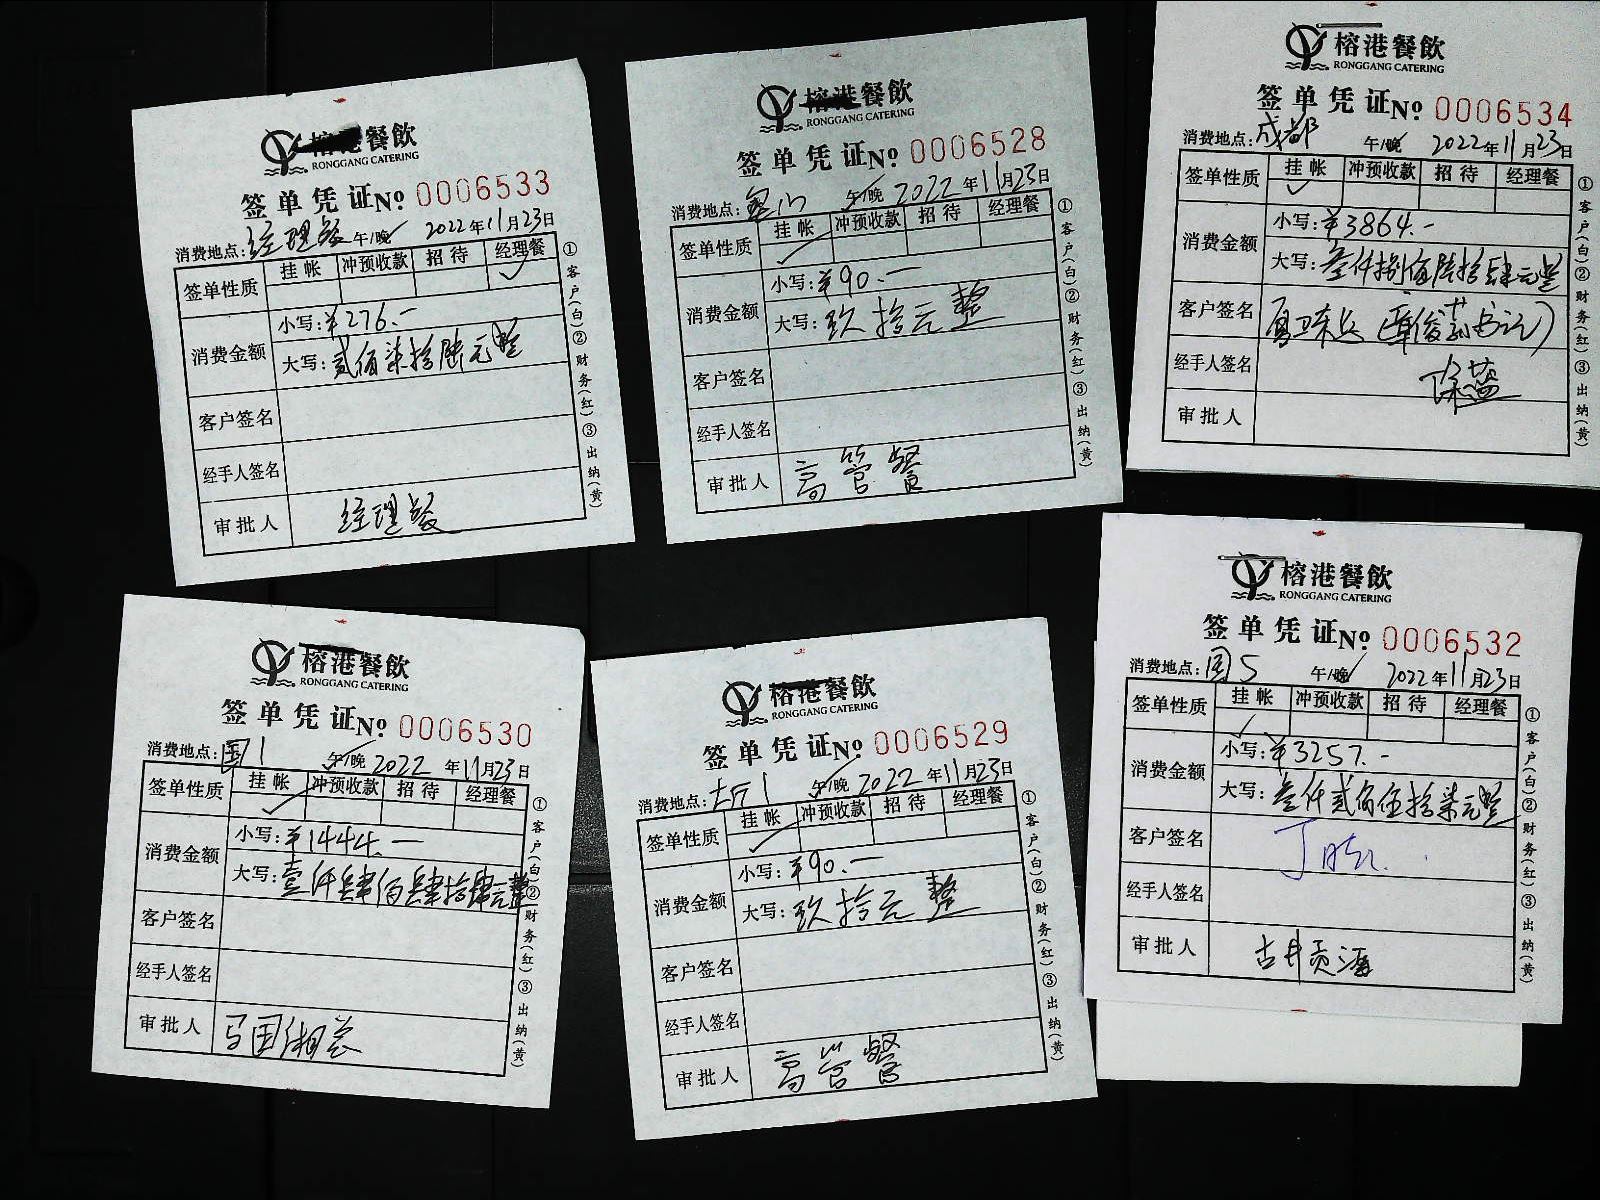 榕港餐飲
RONGGANG CATERING
签单凭证No 0006533
消费地点:经理餐 午/晚 2022年11月23日
签单性质 挂帐 冲预收款 招待 经理餐
消费金额
小写:¥276.-
大写:贰佰柒拾陆元整
客户签名
经手人签名
审批人 经理餐
①客户(白)②财务(红)③出纳(黄)
榕港餐飲
RONGGANG CATERING
签单凭证No 0006528
消费地点: 午/晚 2022年11月23日
签单性质 挂帐 冲预收款 招待 经理餐
消费金额
小写:¥90.-
大写:玖拾元整
客户签名
经手人签名
审批人 高管餐
①客户(白)②财务(红)③出纳(黄)
榕港餐飲
RONGGANG CATERING
签单凭证No 0006534
消费地点:成都 午/晚 2022年11月23日
签单性质 挂帐 冲预收款 招待 经理餐
消费金额
小写:¥3864.-
大写:叁仟捌佰陆拾肆元整
客户签名
经手人签名
审批人
①客户(白)②财务(红)③出纳(黄)
榕港餐飲
RONGGANG CATERING
签单凭证No 0006530
消费地点:国1 午/晚 2022年11月23日
签单性质 挂帐 冲预收款 招待 经理餐
消费金额
小写:¥1444.-
大写:壹仟肆佰肆拾肆元整
客户签名
经手人签名
审批人 马国湘总
①客户(白)②财务(红)③出纳(黄)
榕港餐飲
RONGGANG CATERING
签单凭证No 0006529
消费地点: 午/晚 2022年11月23日
签单性质 挂帐 冲预收款 招待 经理餐
消费金额
小写:¥90.-
大写:玖拾元整
客户签名
经手人签名
审批人 高管餐
①客户(白)②财务(红)③出纳(黄)
榕港餐飲
RONGGANG CATERING
签单凭证No 0006532
消费地点:国5 午/晚 2022年11月23日
签单性质 挂帐 冲预收款 招待 经理餐
消费金额
小写:¥3257.-
大写:叁仟贰佰伍拾柒元整
客户签名
经手人签名
审批人 古井贡酒
①客户(白)②财务(红)③出纳(黄)